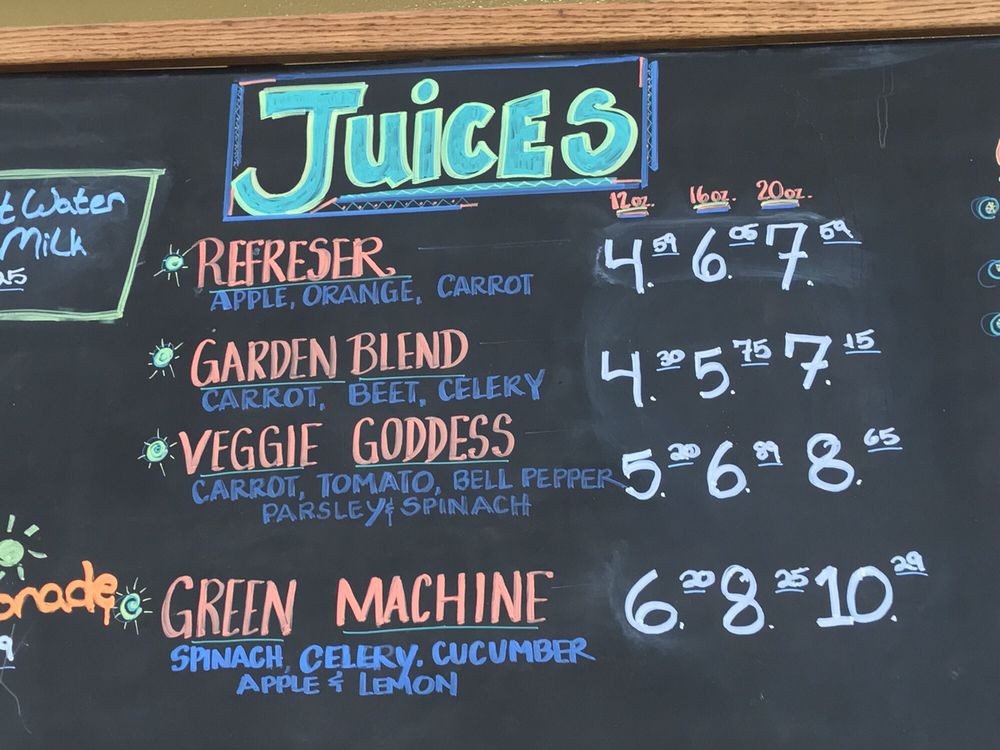 JUICES
12oz. 16oz. 20oz.
t Water
Milk
25
REFRESER 4.59 6.05 7.59
APPLE, ORANGE, CARROT
GARDEN BLEND 4.30 5.75 7.15
CARROT, BEET, CELERY
VEGGIE GODDESS 5.20 6.89 8.65
CARROT, TOMATO, BELL PEPPER
PARSLEY & SPINACH
onade
9
GREEN MACHINE 6.20 8.25 10.29
SPINACH, CELERY, CUCUMBER
APPLE & LEMON